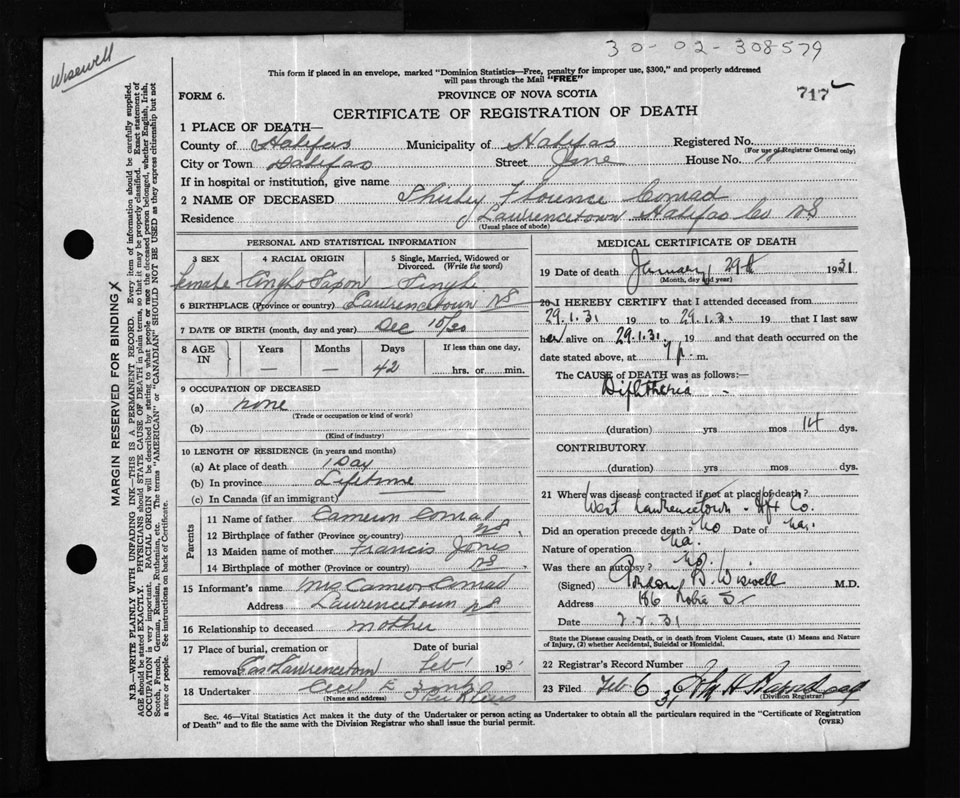 30-02-308579
Wiswell
This form if placed in an envelope, marked "Dominion Statistics—Free, penalty for improper use, $300," and properly addressed
will pass through the Mail "FREE"
FORM 6.
PROVINCE OF NOVA SCOTIA
717
CERTIFICATE OF REGISTRATION OF DEATH
1 PLACE OF DEATH—
County of Halifax Municipality of Halifax Registered No.
(For use of Registrar General only)
City or Town Halifax Street House No.
If in hospital or institution, give name
2 NAME OF DECEASED Shirley Florence Conrad
Residence Lawrencetown Halifax Co NS
(Usual place of abode)
PERSONAL AND STATISTICAL INFORMATION
3 SEX 4 RACIAL ORIGIN 5 Single, Married, Widowed or
Divorced. (Write the word)
female Anglo Saxon Single
6 BIRTHPLACE (Province or country) Lawrencetown NS
7 DATE OF BIRTH (month, day and year) Dec 18/30
8 AGE IN Years Months Days If less than one day,
— — 42 hrs. or min.
9 OCCUPATION OF DECEASED
(a) none
(Trade or occupation or kind of work)
(b)
(Kind of industry)
10 LENGTH OF RESIDENCE (in years and months)
(a) At place of death 1 Day
(b) In province Lifetime
(c) In Canada (if an immigrant)
Parents
11 Name of father Cameron Conrad
12 Birthplace of father (Province or country) NS
13 Maiden name of mother Francis Jones
14 Birthplace of mother (Province or country) NS
15 Informant's name Mrs Cameron Conrad
Address Lawrencetown NS
16 Relationship to deceased mother
17 Place of burial, cremation or Date of burial
removal Lawrencetown Feb 1 1931
18 Undertaker
(Name and address)
MEDICAL CERTIFICATE OF DEATH
19 Date of death January 29th 1931
(Month, day and year)
20 I HEREBY CERTIFY that I attended deceased from
29.1.31. 19 to 29.1.31. 19 that I last saw
her alive on 29.1.31. 19 and that death occurred on the
date stated above, at p. m.
The CAUSE of DEATH was as follows:—
Diphtheria
(duration) yrs mos 14 dys.
CONTRIBUTORY
(duration) yrs mos dys.
21 Where was disease contracted if not at place of death?
West Lawrencetown - Hfx Co.
Did an operation precede death? No Date of na.
Nature of operation na.
Was there an autopsy? no.
(Signed) B. Wiswell M.D.
Address 186 Robie St
Date 2.2.31
State the Disease causing Death, or in death from Violent Causes, state (1) Means and Nature
of Injury, (2) whether Accidental, Suicidal or Homicidal.
22 Registrar's Record Number
23 Filed Feb 6 31
(Division Registrar)
Sec. 46—Vital Statistics Act makes it the duty of the Undertaker or person acting as Undertaker to obtain all the particulars required in the "Certificate of Registration
of Death" and to file the same with the Division Registrar who shall issue the burial permit.
(OVER)
MARGIN RESERVED FOR BINDING
N.B.—WRITE PLAINLY WITH UNFADING INK—THIS IS A PERMANENT RECORD. Every item of information should be carefully supplied.
AGE should be stated EXACTLY. PHYSICIANS should STATE CAUSE OF DEATH in plain terms, so that it may be properly classified. Exact statement of
OCCUPATION is very important. RACIAL ORIGIN will be described by stating to what people or race the deceased person belonged, whether English, Irish,
Scotch, French, German, Russian, Ruthenian, etc. The terms "AMERICAN" or "CANADIAN" SHOULD NOT BE USED as they express citizenship but not
a race or people. See instructions on back of Certificate.